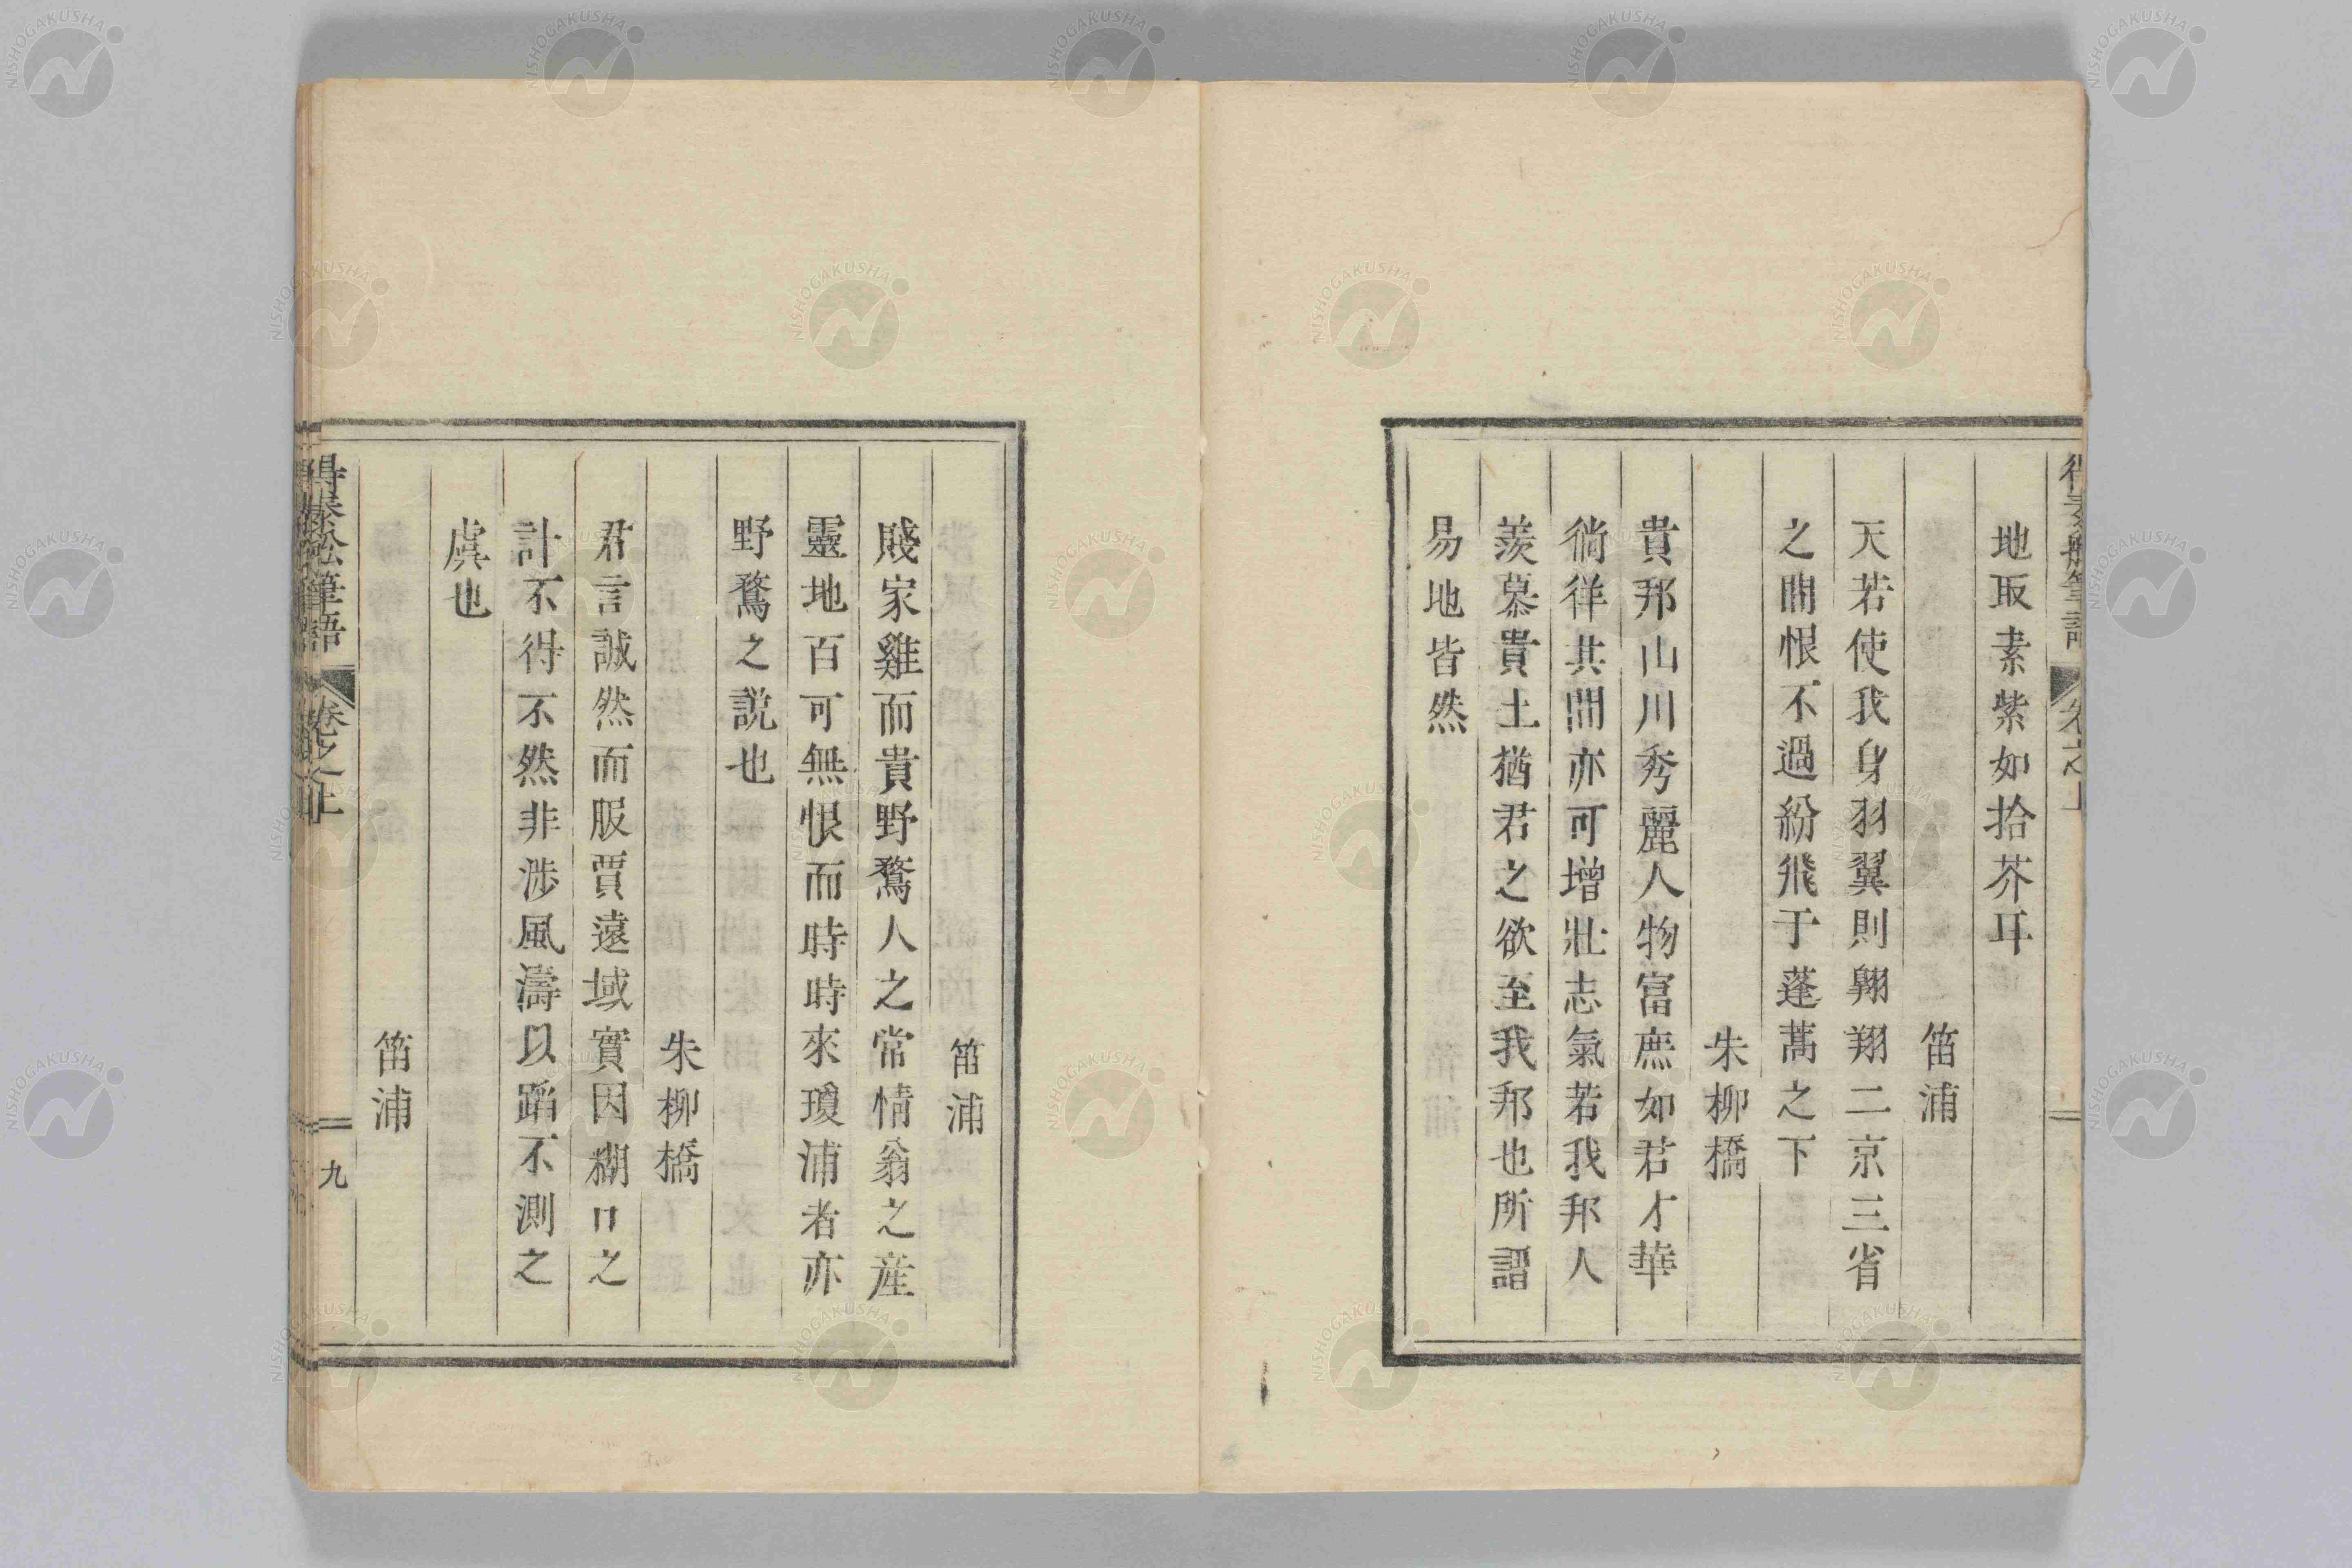 地取素紫如拾芥耳
笛浦
天若使我身羽翼則翺翔二京三省
之間恨不過紛飛于蓬蒿之下
朱柳橋
貴邦山川秀麗人物富庶如君才華
徜徉其間亦可增壯志氣若我邦人
羨慕貴土猶君之欲至我邦也所謂
易地皆然
笛浦
賤家雞而貴野鶩人之常情翁之產
靈地百可無恨而時時來瓊浦者亦
野鶩之説也
朱柳橋
君言誠然而服賈遠域實因糊口之
計不得不然非涉風濤以蹈不測之
虞也
笛浦
得泰船筆語 卷之上 九
NISHOGAKUSHA